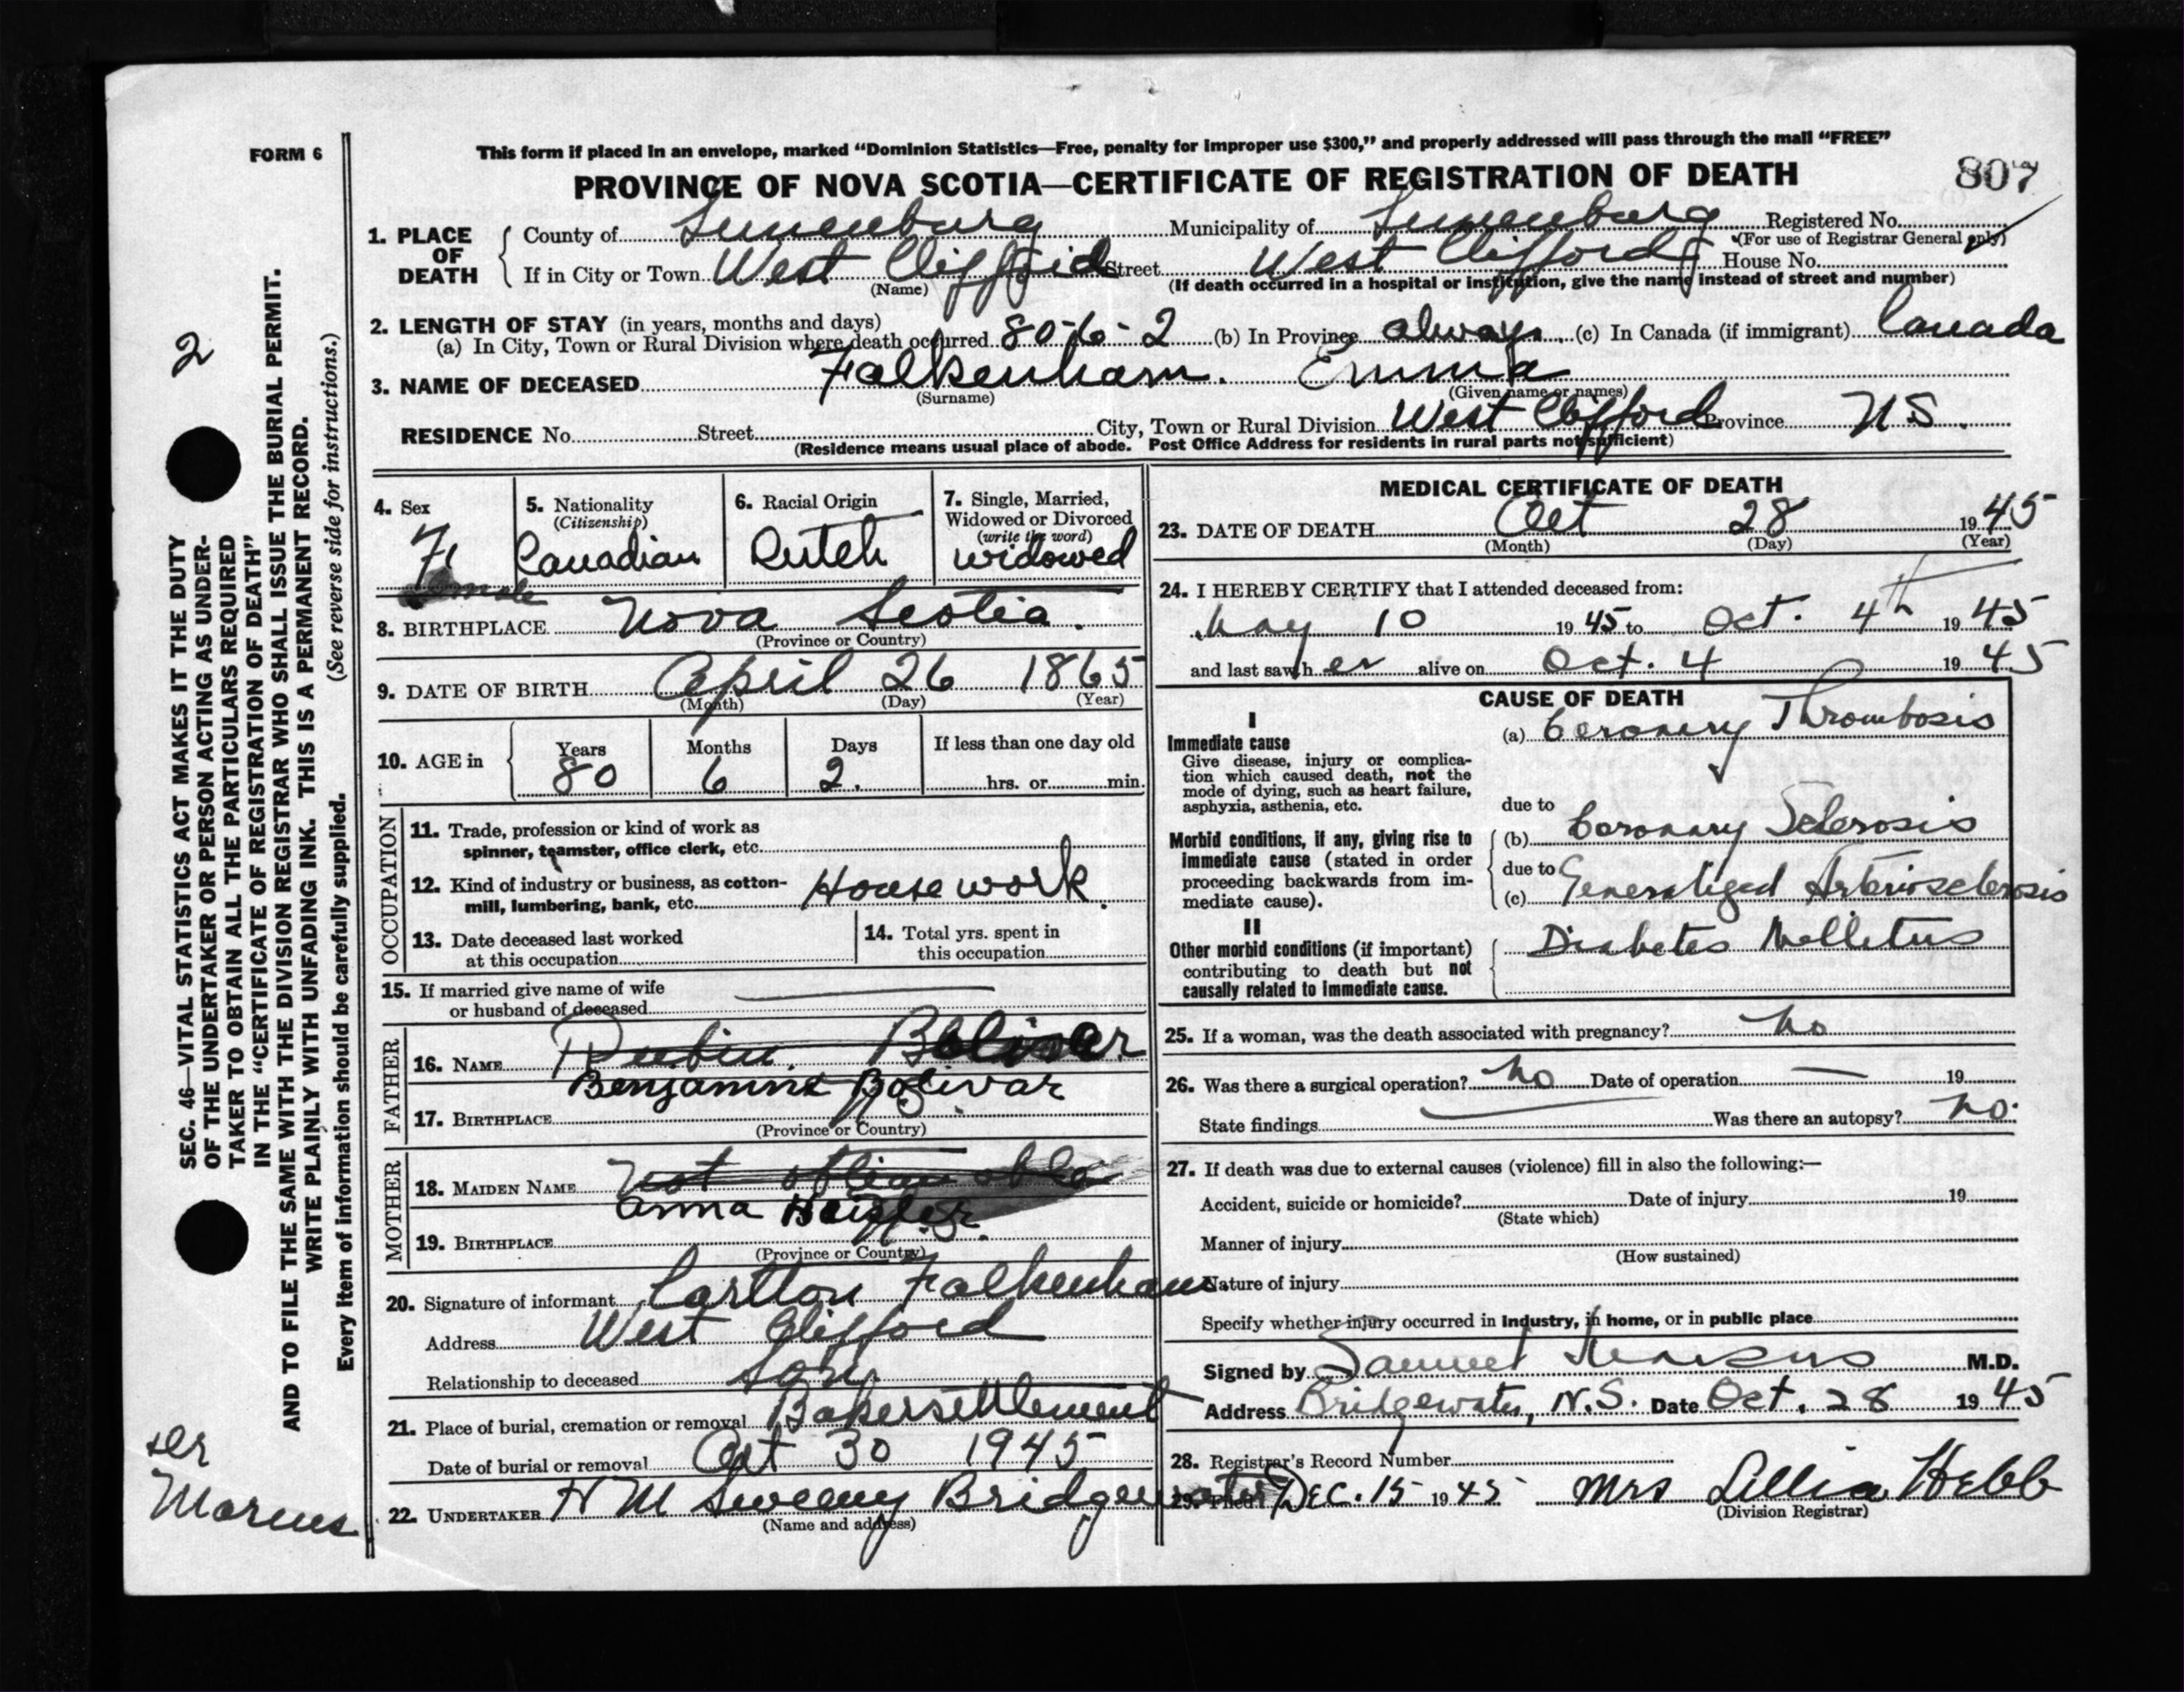 FORM 6
This form if placed in an envelope, marked “Dominion Statistics—Free, penalty for improper use $300,” and properly addressed will pass through the mail “FREE”
PROVINCE OF NOVA SCOTIA—CERTIFICATE OF REGISTRATION OF DEATH
807
1. PLACE OF DEATH
County of Lunenburg Municipality of Lunenburg Registered No.
(For use of Registrar General only)
If in City or Town West Clifford Street West Clifford House No.
(Name)
(If death occurred in a hospital or institution, give the name instead of street and number)
2. LENGTH OF STAY (in years, months and days)
(a) In City, Town or Rural Division where death occurred 80-6-2 (b) In Province always (c) In Canada (if immigrant) Canada
3. NAME OF DECEASED Falkenham. Emma
(Surname) (Given name or names)
RESIDENCE No. Street City, Town or Rural Division West Clifford Province N S.
(Residence means usual place of abode. Post Office Address for residents in rural parts not sufficient)
4. Sex
F
female
5. Nationality
(Citizenship)
Canadian
6. Racial Origin
Dutch
7. Single, Married,
Widowed or Divorced
(write the word)
widowed
8. BIRTHPLACE Nova Scotia.
(Province or Country)
9. DATE OF BIRTH April 26 1865
(Month) (Day) (Year)
10. AGE in
Years Months Days If less than one day old
80 6 2. hrs. or min.
OCCUPATION
11. Trade, profession or kind of work as
spinner, teamster, office clerk, etc.
12. Kind of industry or business, as cotton-
mill, lumbering, bank, etc. House work.
13. Date deceased last worked
at this occupation
14. Total yrs. spent in
this occupation
15. If married give name of wife
or husband of deceased
FATHER
16. NAME Rubin Bolivar
Benjamin Bolivar
17. BIRTHPLACE N.S.
(Province or Country)
MOTHER
18. MAIDEN NAME Not
Anna
19. BIRTHPLACE N.S.
(Province or Country)
20. Signature of informant Carlton Falkenham
Address West Clifford
Relationship to deceased Son.
21. Place of burial, cremation or removal Bakersettlement
Date of burial or removal Oct 30 1945
22. UNDERTAKER H M Sweeny Bridgewater
(Name and address)
MEDICAL CERTIFICATE OF DEATH
23. DATE OF DEATH Oct 28 1945
(Month) (Day) (Year)
24. I HEREBY CERTIFY that I attended deceased from:
May 10 1945 to Oct. 4th 1945
and last saw her alive on Oct. 4 1945
CAUSE OF DEATH
I
Immediate cause
Give disease, injury or complica-
tion which caused death, not the
mode of dying, such as heart failure,
asphyxia, asthenia, etc.
(a) Coronary Thrombosis
due to
Morbid conditions, if any, giving rise to
immediate cause (stated in order
proceeding backwards from im-
mediate cause).
(b) Coronary Sclerosis
due to
(c) Generalized Arteriosclerosis
II
Other morbid conditions (if important)
contributing to death but not
causally related to immediate cause.
Diabetes Mellitus
25. If a woman, was the death associated with pregnancy? No
26. Was there a surgical operation? No Date of operation — 19
State findings Was there an autopsy? No.
27. If death was due to external causes (violence) fill in also the following:—
Accident, suicide or homicide? Date of injury 19
(State which)
Manner of injury
(How sustained)
Nature of injury
Specify whether injury occurred in industry, in home, or in public place
Signed by Samuel Marcus M.D.
Address Bridgewater, N.S. Date Oct. 28 1945
28. Registrar's Record Number
29. Filed Dec. 15 1945 Mrs Lillia Hebb
(Division Registrar)
2
SEC. 46—VITAL STATISTICS ACT MAKES IT THE DUTY
OF THE UNDERTAKER OR PERSON ACTING AS UNDER-
TAKER TO OBTAIN ALL THE PARTICULARS REQUIRED
IN THE “CERTIFICATE OF REGISTRATION OF DEATH”
AND TO FILE THE SAME WITH THE DIVISION REGISTRAR WHO SHALL ISSUE THE BURIAL PERMIT.
WRITE PLAINLY WITH UNFADING INK. THIS IS A PERMANENT RECORD.
(See reverse side for instructions.)
Every item of information should be carefully supplied.
Marcus